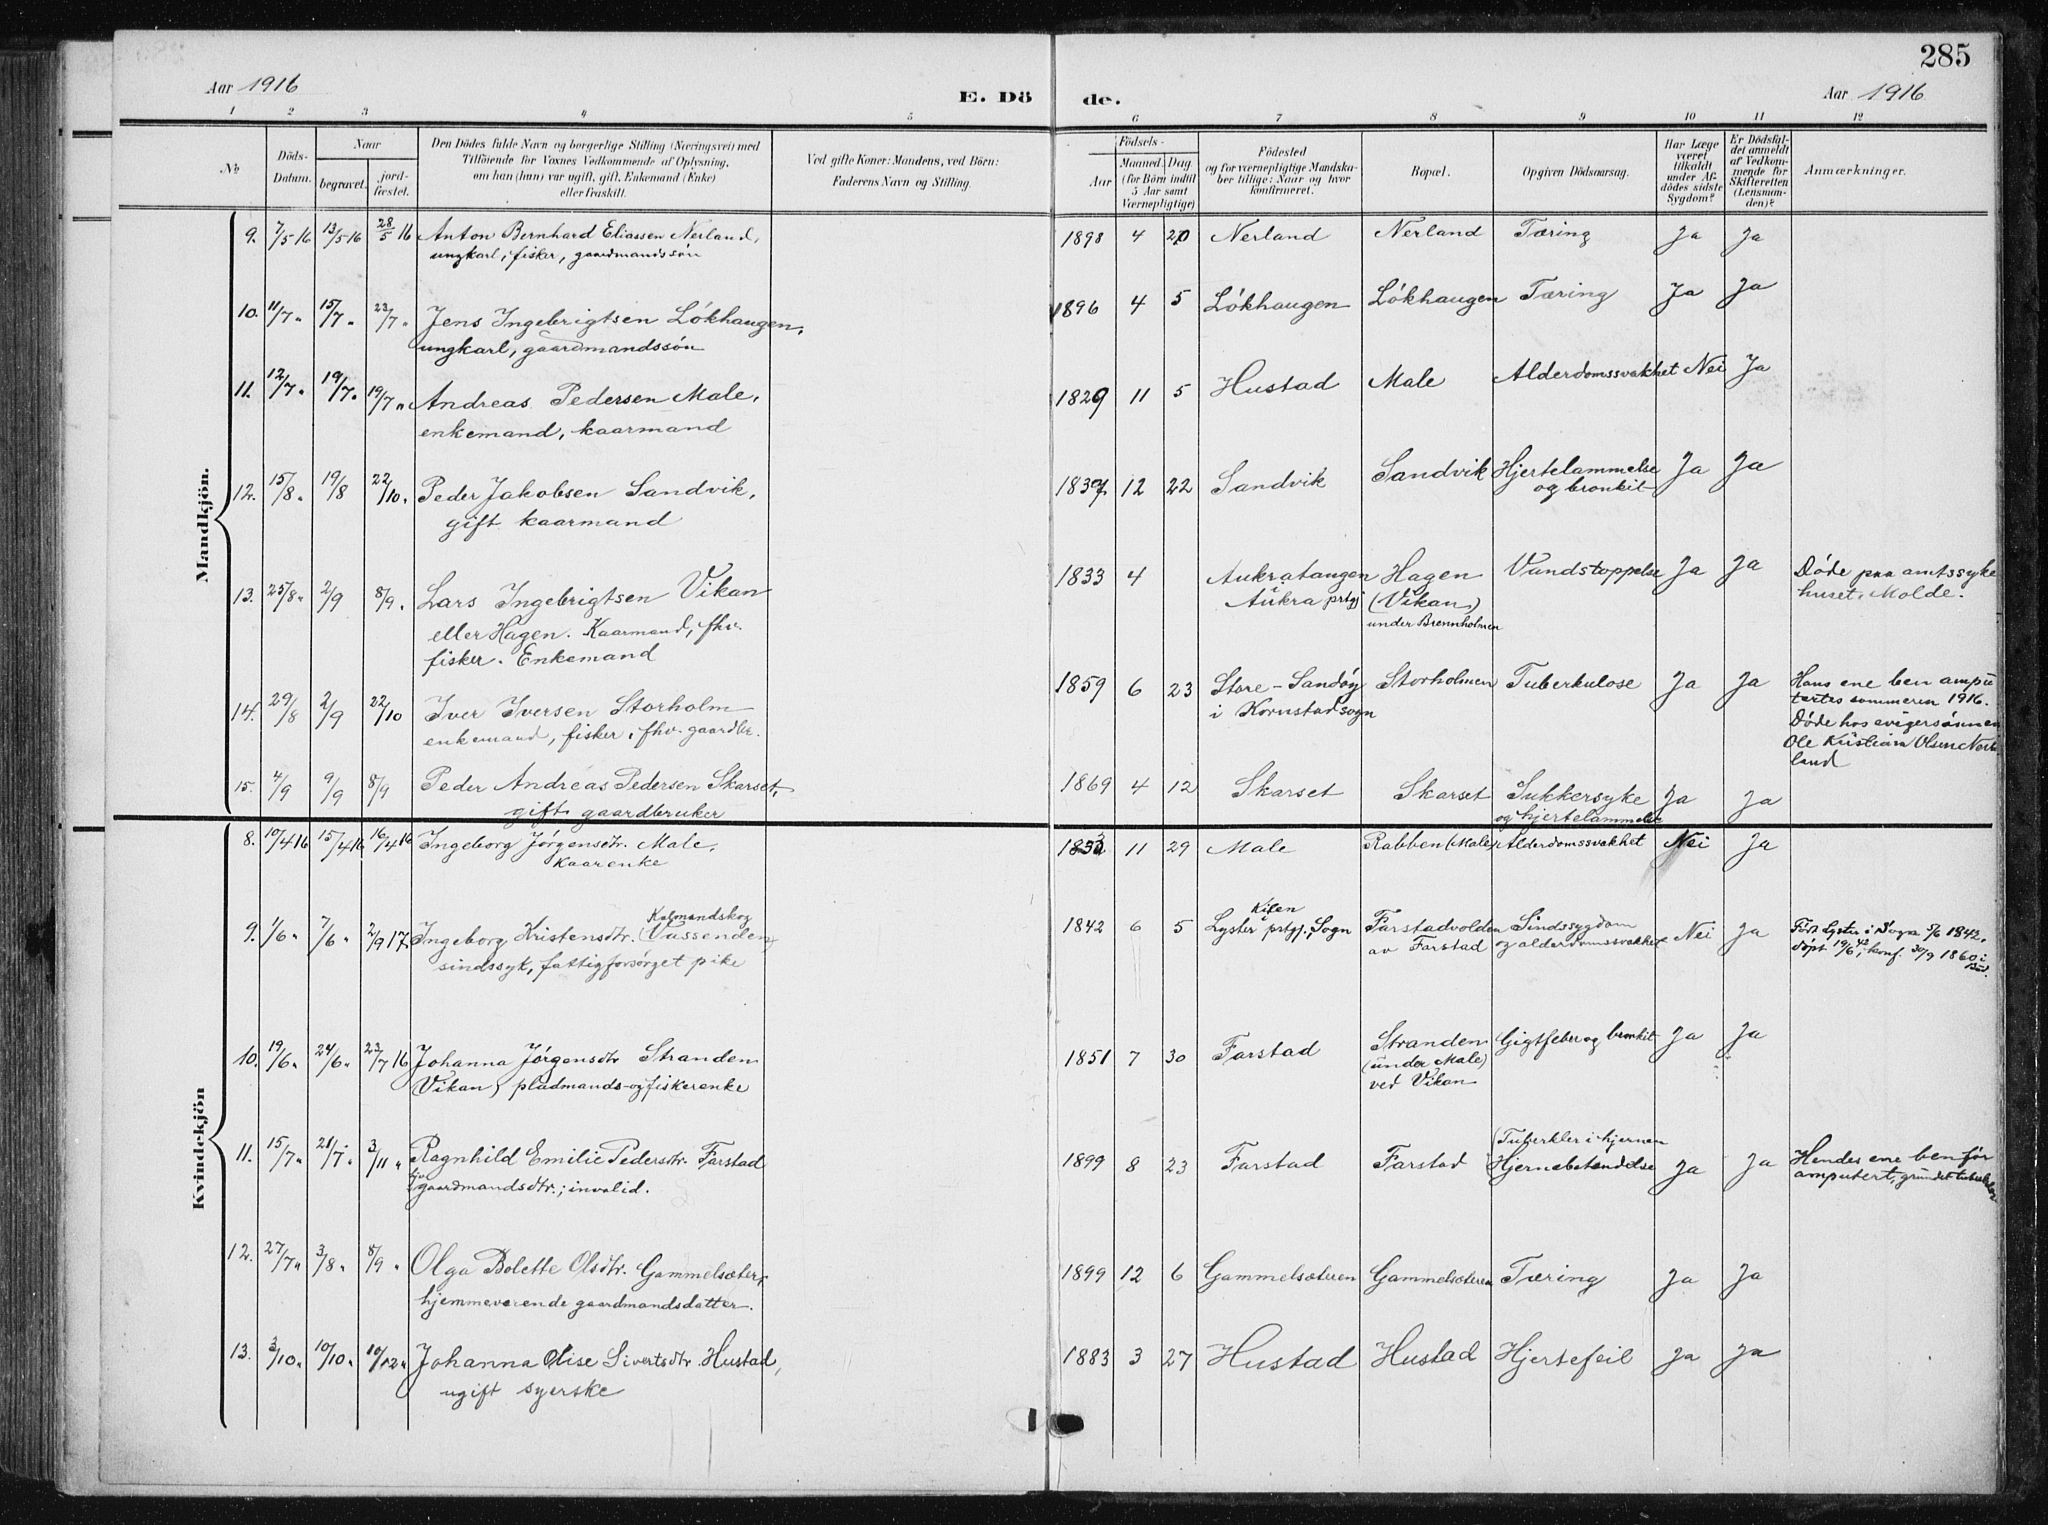 285
Aar 1916
E. Dö de.
Aar 1916
1 2 3 4 5 6 7 8 9 10 11 12
No.
Döds-Datum.
Naar
begravet.
jordfæstet.
Den Dödes fulde Navn og borgerlige Stilling (Næringsvei) med
Tilföiende for Voxnes Vedkommende af Oplysning,
om han (hun) var ugift, gift, Enkemand (Enke)
eller fraskilt.
Ved gifte Koner: Mandens, ved Börn:
Faderens Navn og Stilling.
Födsels-
Aar
Maaned.
Dag.
(for Börn indtil
5 Aar samt
Værnepligtige)
Födested
og for værnepligtige Mandskaber
tillige: Naar og hvor
konfirmeret.
Bopæl.
Opgiven Dödsaarsag.
Har Læge
været
tilkaldt
under Afdödes
sidste
Sygdom?
Er Dödsfaldet
anmeldt
af Vedkommende
for
Skifteretten
(Lensmanden)?
Anmærkninger.
Mandkjön.
9. 7/5 16 13/5 16 28/5 16 Anton Bernhard Eliassen Nerland, 1898 4 20 Nerland Nerland Tæring Ja Ja
ungkarl, fisker, gaardmandssøn
10. 11/7 " 15/7 " 23/7 " Jens Ingebrigtsen Lókhaugen, 1896 4 5 Lókhaugen Lókhaugen Tæring Ja Ja
ungkarl, gaardmandssón
11. 12/7 " 19/7 " 19/7 " Andreas Pedersen Male, 1829 11 5 Hustad Male Alderdomssvakhet Nei Ja
enkemand, kaarmand
12. 15/8 " 19/8 22/10 " Peder Jakobsen Sandvik, 1837 12 22 Sandvik Sandvik Hjertelammelse Ja Ja
gift kaarmand og bronkit
13. 25/8 " 2/9 8/9 " Lars Ingebrigtsen Vikan 1833 4 Aukratangen Hagen Vandstoppelse Ja Ja Døde paa amtssyke
eller Hagen. Kaarmand, fhv. Aukra prtgj (Vikan) huset, Molde.
fisker. Enkemand under Brennholmen
14. 29/8 2/9 22/10 Iver Iversen Storholm 1859 6 23 Store-Sandøy Storholmen Tuberkulose Ja Ja Hans ene ben ampu
enkemand, fisker, fhv. gaardbr. i Kornstad sogn tertes sommeren 1916.
Døde hos svigersønnen
Ole Kristian Olsen Nerland
15. 4/9 9/9 8/9 Peder Andreas Pedersen Skarset, 1869 4 12 Skarset Skarset Sukkersyke Ja Ja
gift gaardbruker og hjertelammelse
Kvindekjön
8. 10/4 16 15/4 16 16/4 16 Ingeborg Jørgensdtr. Male, 11 29 Male Rabben (Male) Alderdomssvakhet Nei Ja
Kaarenke
9. 1/6 " 7/6 " 2/9 17. Ingeborg Kristensdtr. (Vassenden) 1842 6 5 Lyster prtgj., Sogn Farstadvolden Sindssygdom Nei Ja Født Lyster i Sogn 5/6 1842,
sindssyk, fattigforsørget pike av Farstad og alderdomssvakhet døpt 19/6 42, konf. 30/9 1860 i
Bud.
10. 19/6 " 24/6 " 23/7 16 Johanna Jørgensdtr Stranden 1851 7 30 Farstad Stranden Gigtfeber og bronkit Ja Ja
Vikan, pladmands- og fiskerenke (under Male)
ved Vikan
11. 15/7 " 21/7 " 3/11 " Ragnhild Emilie Pedersdtr. Farstad 1899 8 23 Farstad Farstad (Tuberkler i hjernen Ja Ja Hendes ene ben før
gaardmandsdtr.; invalid. Hjernebetændelse amputert, grundet tuberkler
12. 27/7 " 3/8 " 8/9 " Olga Bolette Olsdtr. Gammelsæter, 1899 12 6 Gammelsæteren Gammelsæteren Tæring Ja Ja
hjemmeværende gaardmandsdatter.
13. 3/10 " 10/10 " 10/12 " Johanna Olise Sivertsdtr Hustad, 1883 3 27 Hustad Hustad Hjertefeil Ja Ja
ugift syerske